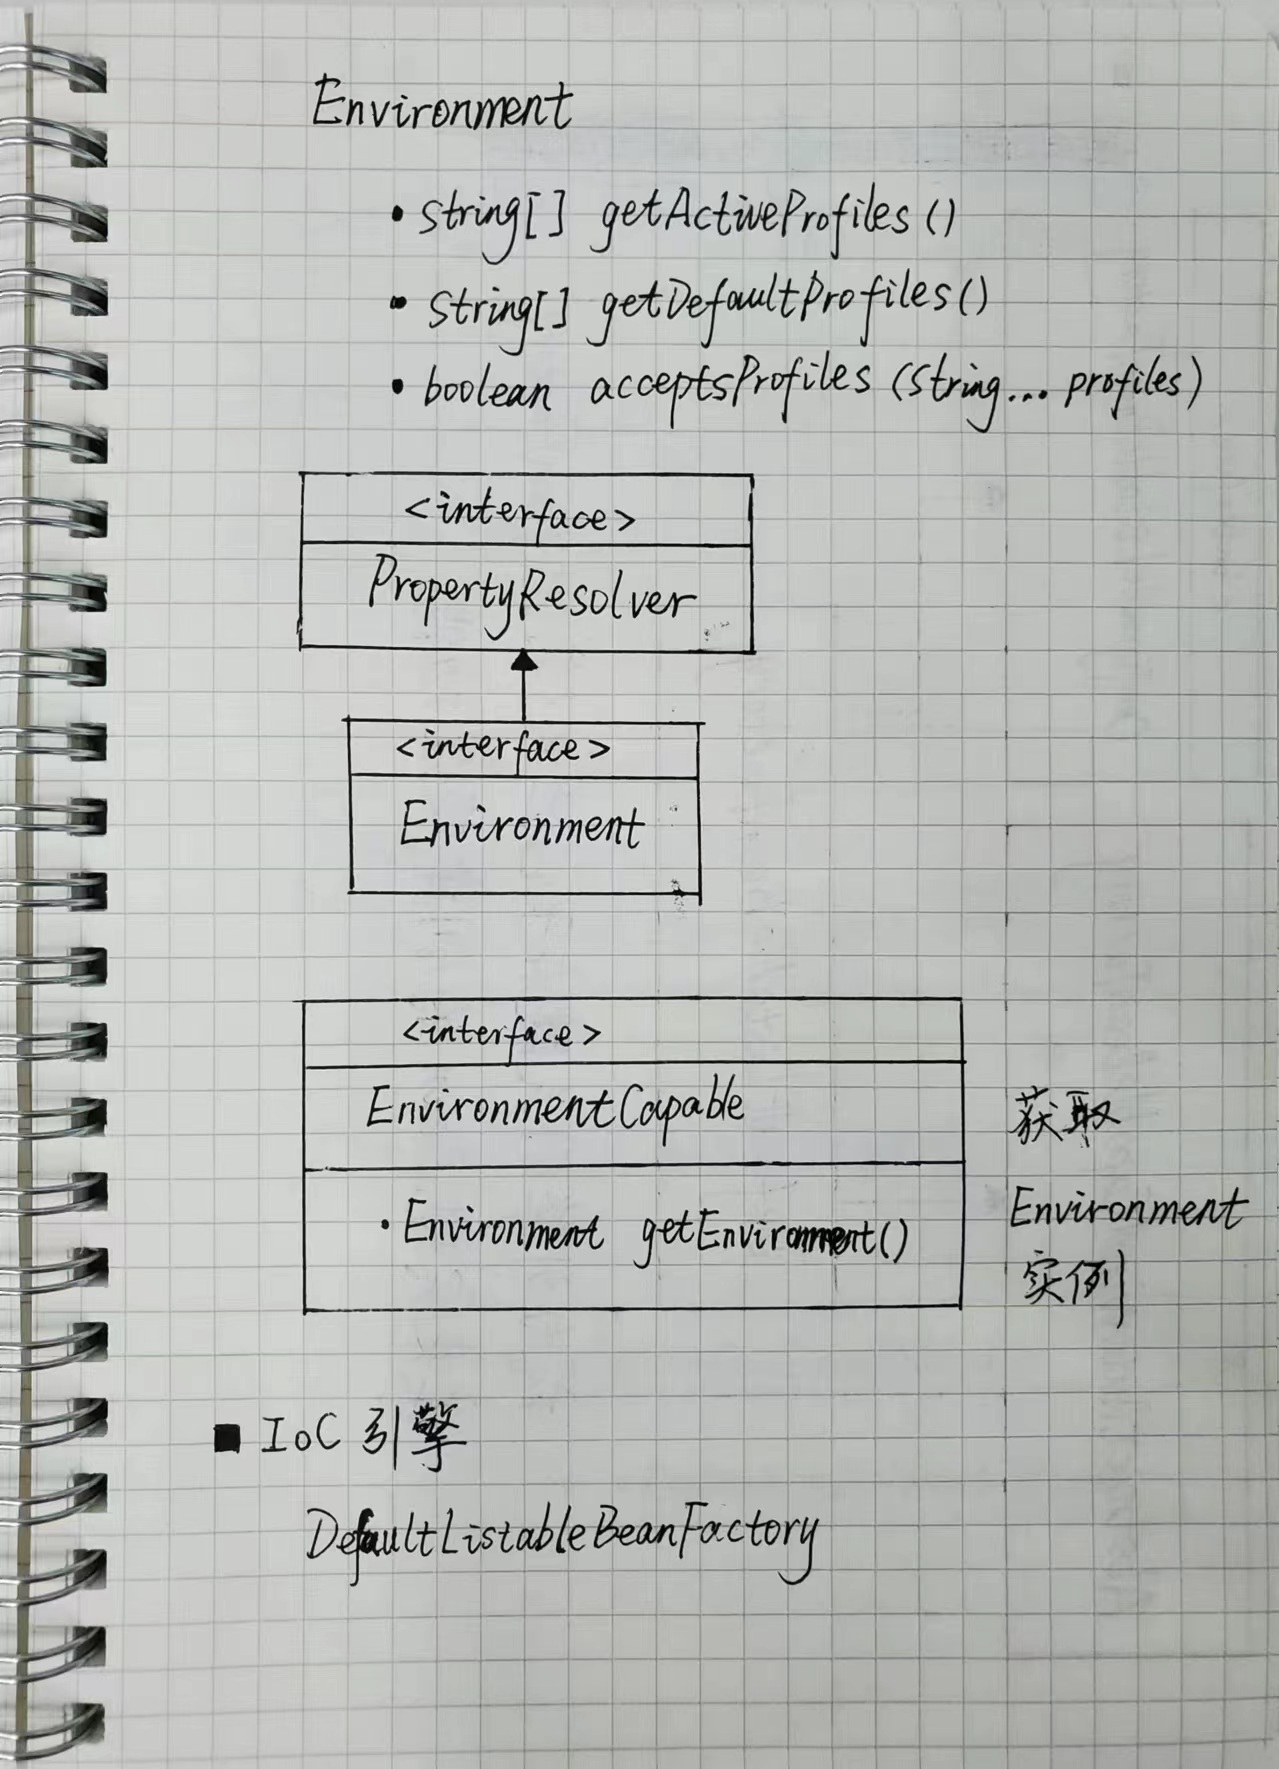 Environment
• String[] getActiveProfiles()
• String[] getDefaultProfiles()
• boolean acceptsProfiles (String... profiles)
<interface>
PropertyResolver
<interface>
Environment
<interface>
EnvironmentCapable
• Environment getEnvironment()
获取
Environment
实例
■ IoC 引擎
DefaultListableBeanFactory